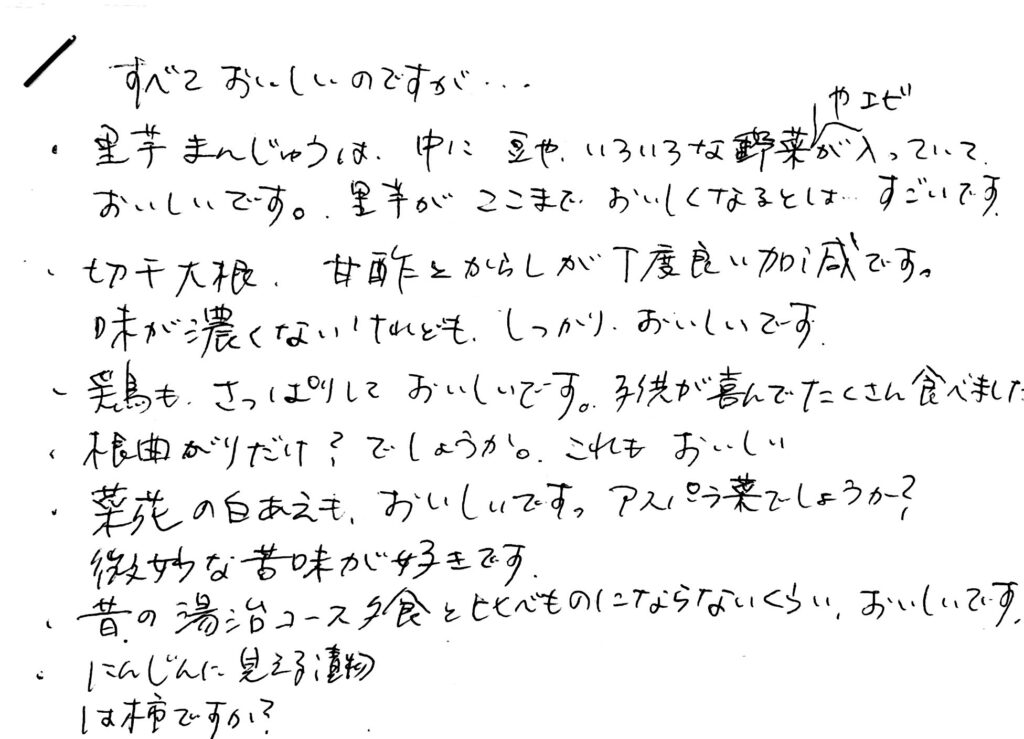 すべて おいしいのですが...
・里芋まんじゅうは、中に 豆や、いろいろな野菜やエビが入っていて、
おいしいです。里芋が ここまで おいしくなるとは… すごいです
・切干大根、 甘酢とからしが丁度良い加減です。
味が濃くないけれども、しっかり、おいしいです
・鶏も、さっぱりして おいしいです。子供が喜んでたくさん食べました
・根曲がりだけ?でしょうか。これも おいしい
・菜花の白あえも、おいしいです。アスパラ菜でしょうか?
微妙な苦味が好きです。
・昔の湯治コース夕食と比べものにならないくらい、おいしいです。
・にんじんに見える漬物
は柿ですか?